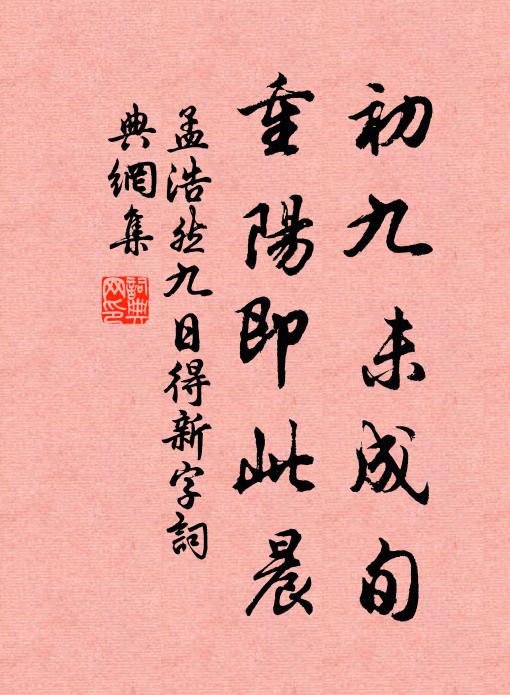 初九未成旬
重陽即此晨
孟浩然九日得新字詞
典網集
詞典網印